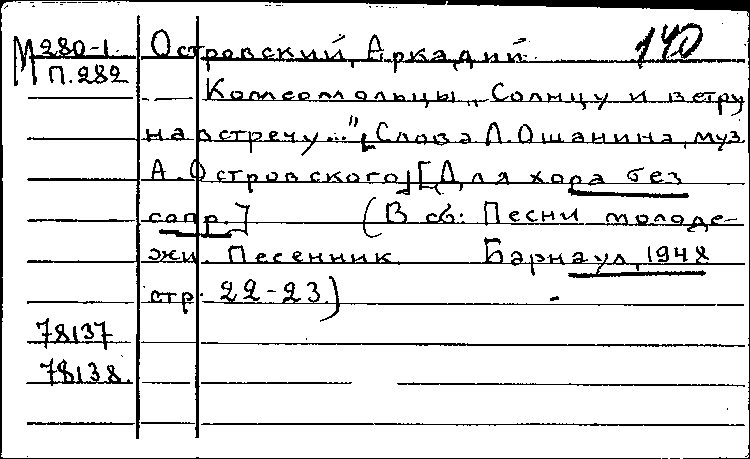 М 280-1 Островский, Аркадий 140
П. 282
Комсомольцы „Солнцу и ветру
навстречу..." [Слова Л. Ошанина, муз.
А. Островского] [Для хора без
сопр.] (В сб: Песни молоде-
жи. Песенник. Барнаул, 1948
стр. 22-23.)
78137
78138.